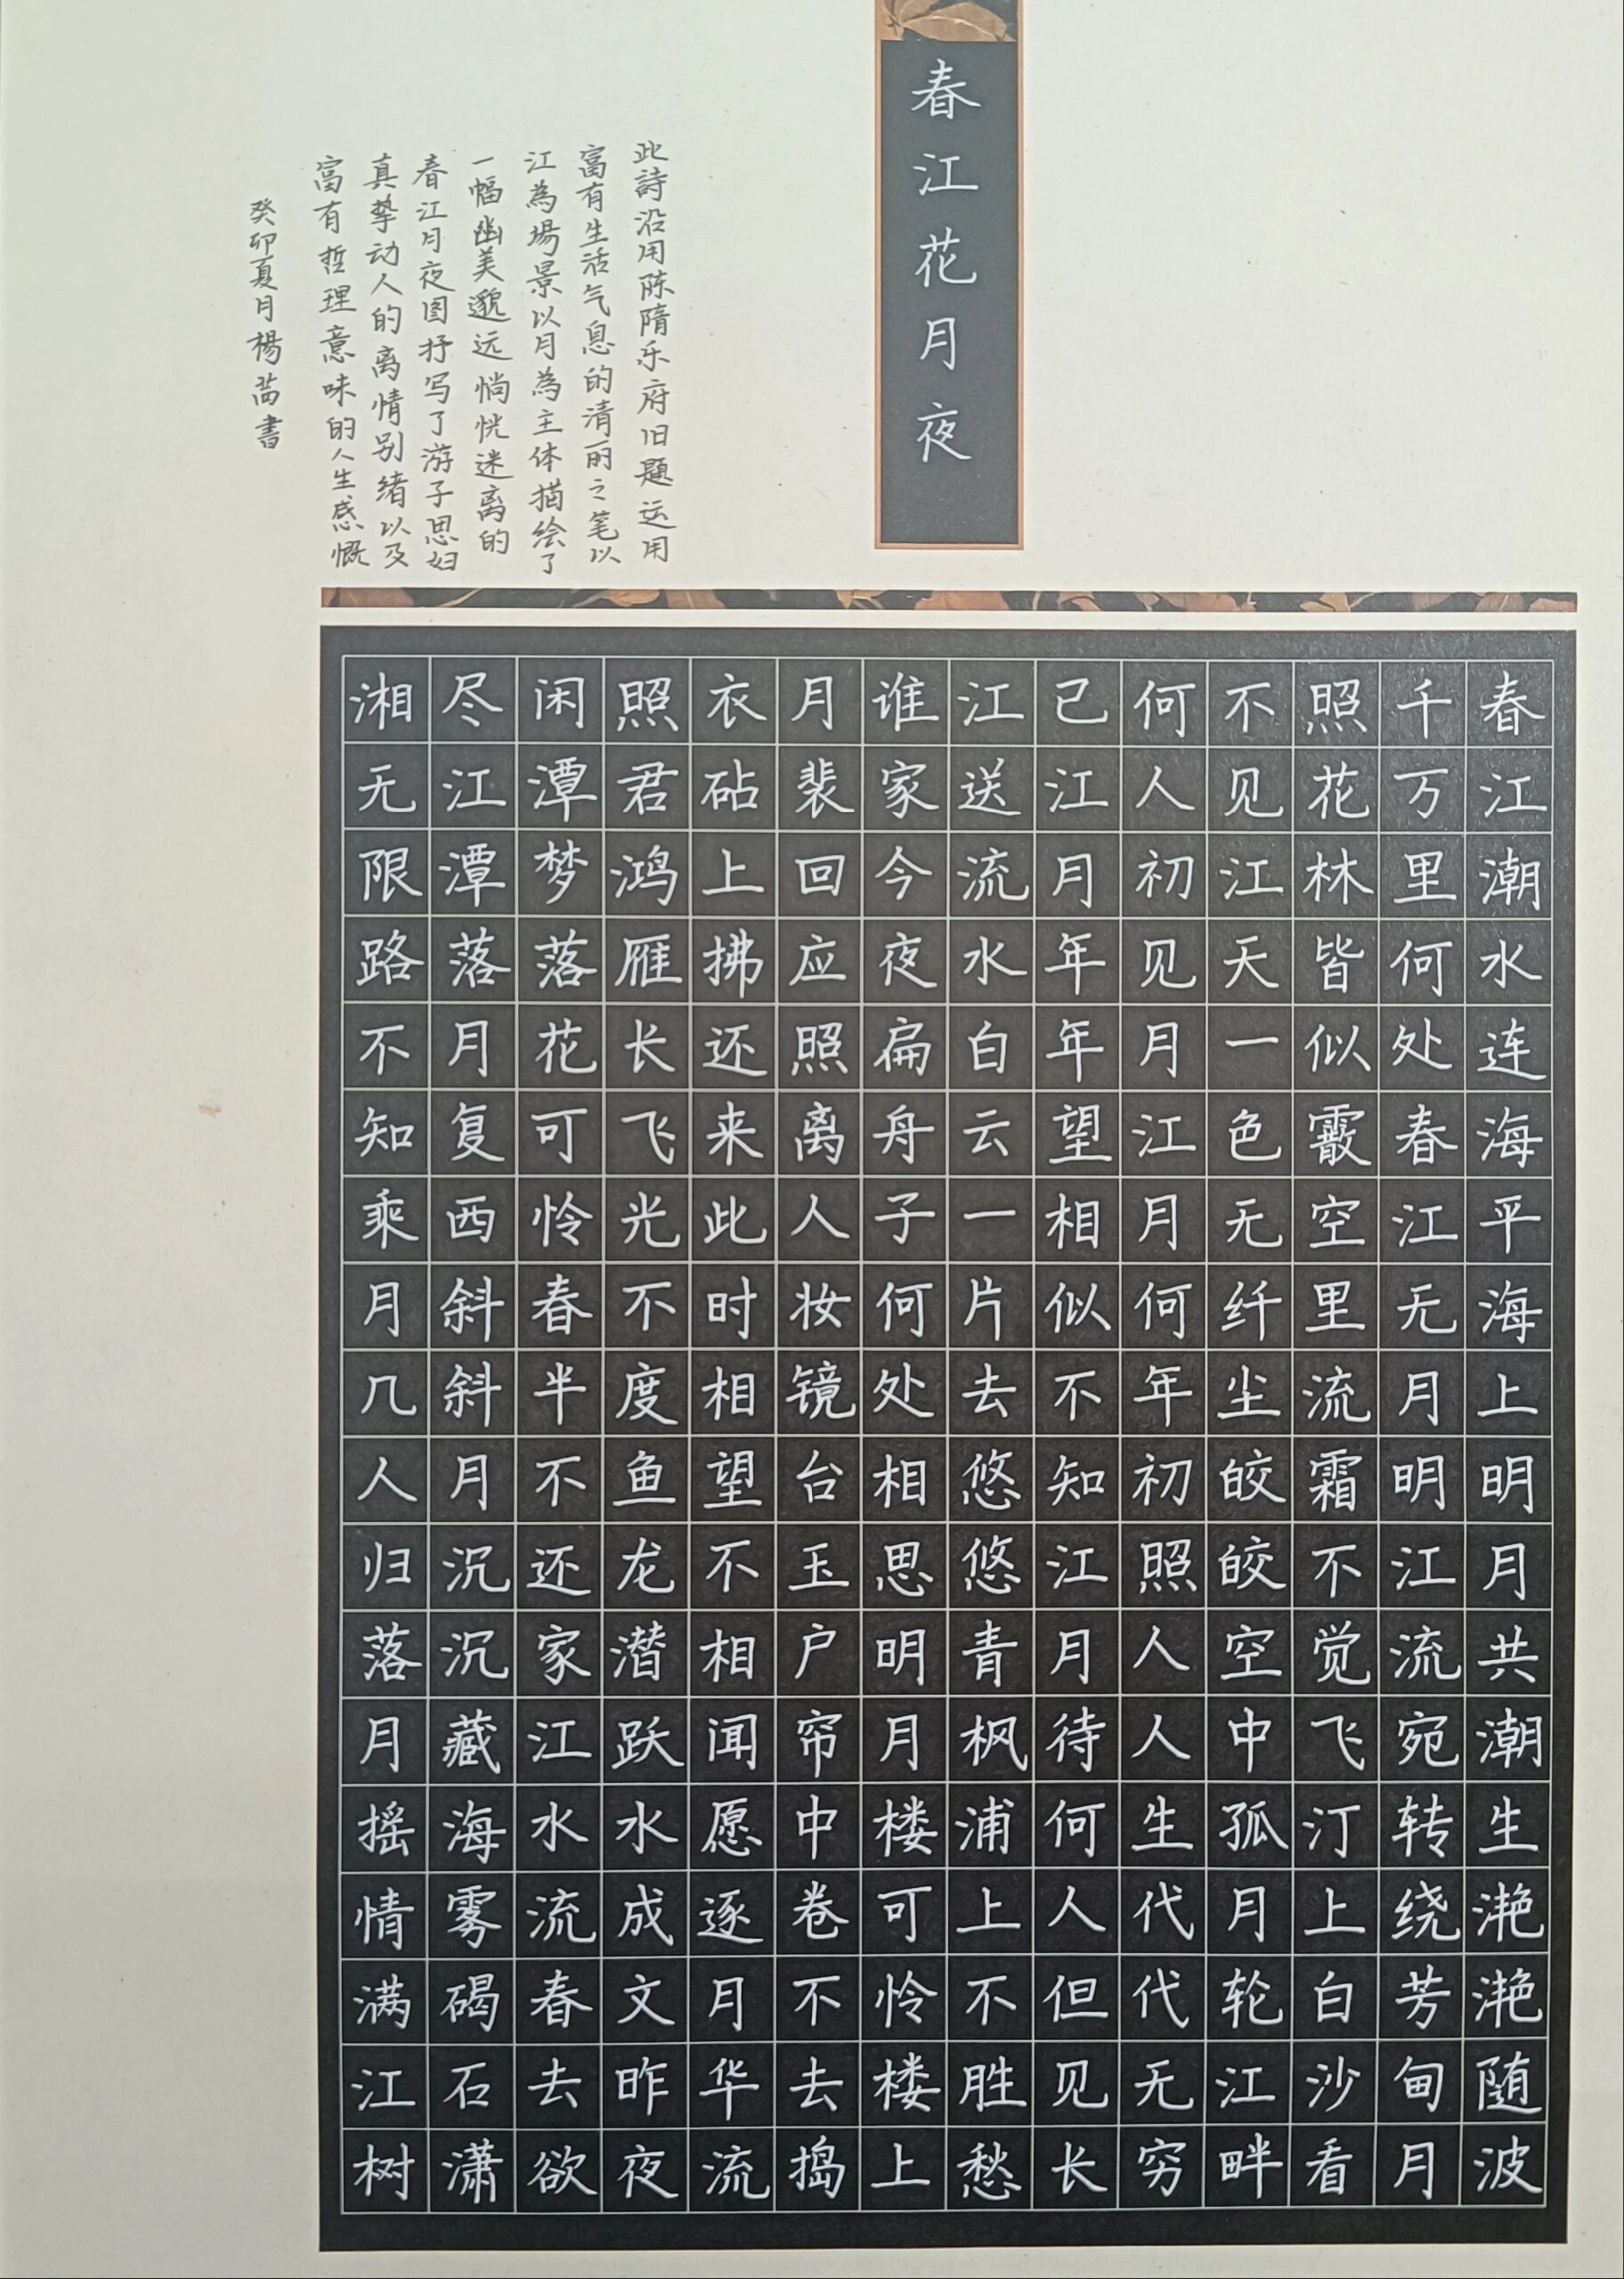 春江花月夜
春江潮水连海平海上明月共潮生滟滟随波
千万里何处春江无月明江流宛转绕芳甸月
照花林皆似霰空里流霜不觉飞汀上白沙看
不见江天一色无纤尘皎皎空中孤月轮江畔
何人初见月江月何年初照人人生代代无穷
已江月年年望相似不知江月待何人但见长
江送流水白云一片去悠悠青枫浦上不胜愁
谁家今夜扁舟子何处相思明月楼可怜楼上
月裴回应照离人妆镜台玉户帘中卷不去捣
衣砧上拂还来此时相望不相闻愿逐月华流
照君鸿雁长飞光不度鱼龙潜跃水成文昨夜
闲潭梦落花可怜春半不还家江水流春去欲
尽江潭落月复西斜斜月沉沉藏海雾碣石潇
湘无限路不知乘月几人归落月摇情满江树
此詩沿用陈隋乐府旧题运用
富有生活气息的清丽之笔以
江為場景以月為主体描绘了
一幅幽美邈远惝恍迷离的
春江月夜图抒写了游子思妇
真挚动人的离情别绪以及
富有哲理意味的人生感慨
癸卯夏月楊書